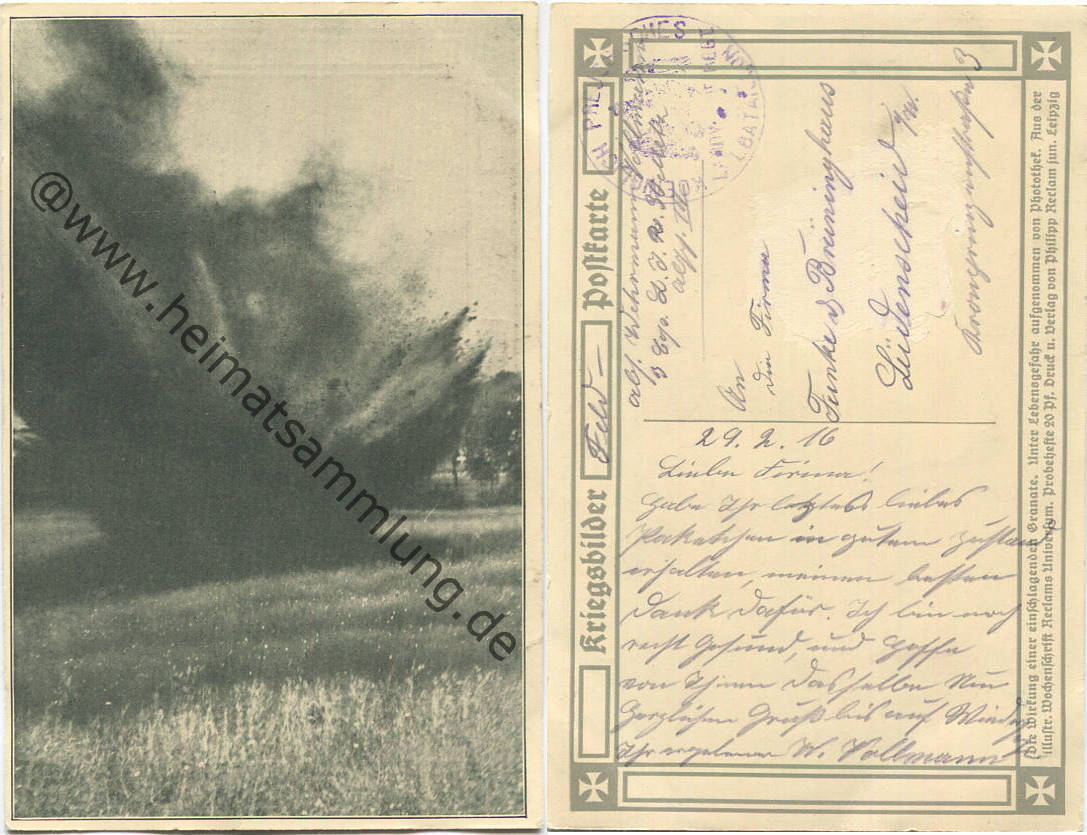 @www.heimatsammlung.de
Kriegsbilder
Feld-
Postkarte
Abs. Wehrmann Vollmann
3 Cop. L. J. R.
An
die Firma
Funke & Breuninghaus
Lüdenscheid i/W.
3
29.2.16
Liebe Firma!
Habe Ihr letztes liebes
Paketchen in gutem Zustand
erhalten, meinen besten
Dank dafür. Ich bin noch
recht Gesund, und hoffe
von Ihnen dasselbe Nun
Herzlichen Gruß bis auf Wieders.
Ihr ergebener W. Vollmann
Die Wirkung einer einschlagenden Granate. Unter Lebensgefahr aufgenommen von Photothek. Aus der
illustr. Wochenschrift Reclams Universum. Probehefte 20 Pf. Druck u. Verlag von Philipp Reclam jun. Leipzig